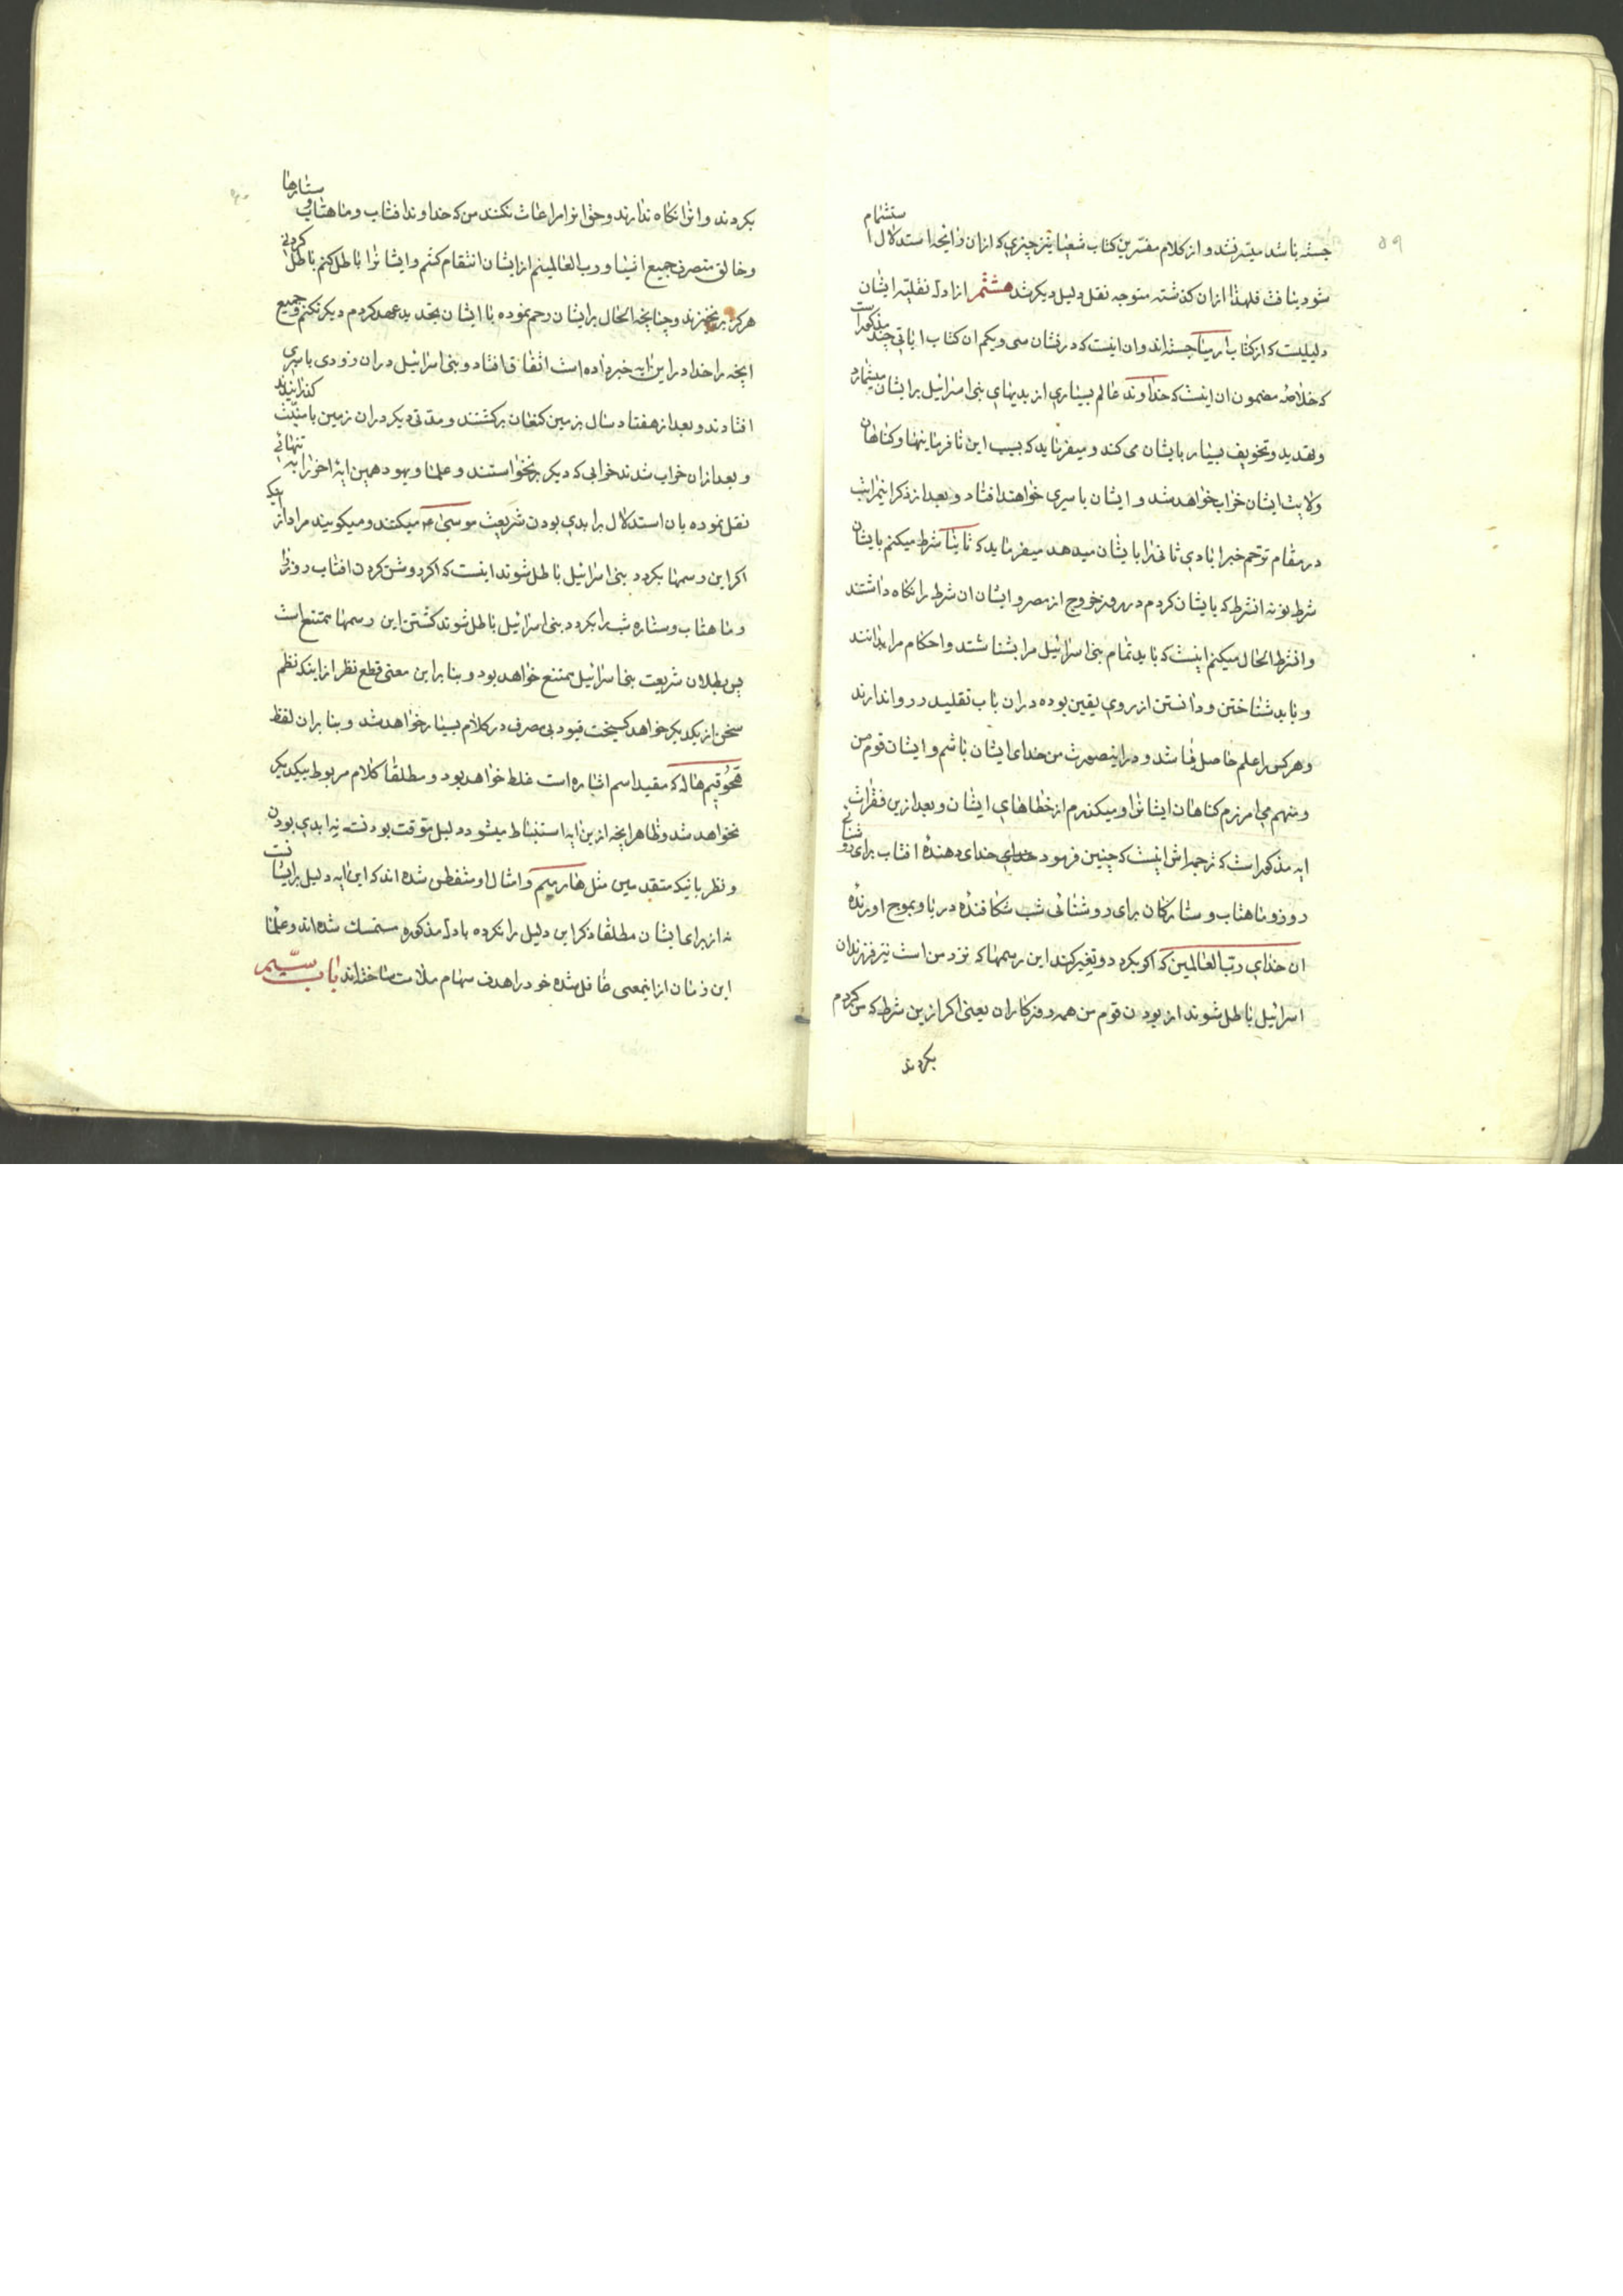 ۵۹
جسته باشد میسر نشد و از کلام مفسرین کتاب شعیا نیز چیزی که ازان رایحه استدلال استشمام
شود نیافت فلهذا ازان گذشته متوجه نقل دلیل دیگر شد هشتم از ادله نقلیه ایشان
دلیلیست که از کتاب ارمیا جسته اند و ان اینست که در نشان سی و یکم ان کتاب ایاتی چند مذکور است
که خلاصه مضمون ان اینست که خداوند عالم بسیاری از بدیهای بنی اسرائیل بر ایشان میشمارد
و تهدید و تخویف بسیار بایشان می کند و میفرماید که بسبب این نافرمانیها و کناهان
ولایت ایشان خراب خواهد شد و ایشان باسیری خواهند افتاد و بعد از ذکر اینمراتب
در مقام ترحم خبر ابادی ثانی را بایشان میدهد میفرماید که ثانیا شرط میکنم بایشان
شرط نو نه انشرط که بایشان کردم در روز خروج از مصر و ایشان ان شرط را نکاه داشتند
و انشرط الحال میکنم اینست که باید تمام بنی اسرائیل مرا بشناسند و احکام مرا بدانند
و باید شناختن و دانستن از روی یقین بوده دران باب تقلید را روا ندارند
و هر کس را علم حاصل باشد و در اینصورت من خدای ایشان باشم و ایشان قوم من
و منهم می امرزم کناهان ایشانرا و میکذرم از خطاهای ایشان و بعد ازین فقرات
ایه مذکور است که ترجمه اش اینست که چنین فرمود خدای دهنده افتاب برای روشنائی
روز و ماهتاب و ستارکان برای روشنائی شب شکافنده دریا و بموج اورنده
ان خدای رب العالمین که اکر بکردد و تغیر کند این رسمها که نزد من است نیز فرزندان
اسرائیل باطل شوند از بودن قوم من همه روزکاران یعنی اکر ازین شرط که من کردم
بکردند
بکردند و انرا نکاه ندارند و حق انرا مراعات نکنند من که خداوند افتاب و ماهتاب و ستارها
و خالق متصرف جمیع اشیا و رب العالمینم از ایشان انتقام کشم و ایشانرا باطل کنم باطل کردنی
هرکز برنخیزند و چنانچه الحال بر ایشان رحم نموده با ایشان تجدید عهد کردم دیکر نکنم و جمیع
انچه را خدا در این ایه خبر داده است اتفاق افتاد و بنی اسرائیل دران زودی باسیری
افتادند و بعد از هفتاد سال بزمین کنعان برکشتند و مدتی دیکر دران زمین کذرانیدند
و بعد ازان خراب شدند خرابی که دیکر برنخواستند و علماء یهود همین ایه اخر را به تنهائی
نقل نموده بان استدلال بر ابدی بودن شریعت موسی ۴ میکنند و میکویند مراد از اینکه
اکر این رسمها بکردد بنی اسرائیل باطل شوند اینست که اکر روشن کردن افتاب روز را
و ماهتاب و ستاره شب را بکردد بنی اسرائیل باطل شوند کشتن این رسمها ممتنع است
پس بطلان شریعت بنی اسرائیل ممتنع خواهد بود و بنا بر این معنی قطع نظر از اینکه نظم
سخن از یکدیکر خواهد کسیخت قیود بی مصرف در کلام بسیار خواهد شد و بنا بران لفظ
هاله که مفید اسم اشاره است غلط خواهد بود و مطلقا کلام مربوط بیکدیکر
نخواهد شد و ظاهرا انچه ازین ایه استنباط میشود دلیل موقت بودنست نه ابدی بودن
و نظر باینکه متقدمین مثل و امثال او متفطن شده اند که این ایه دلیل بر ایشانست
نه از برای ایشان مطلقا ذکر این دلیل را نکرده بادله مذکوره متمسک شده اند و علماء
این زمان از اینمعنی غافل شده خود را هدف سهام ملامت ساخته اند باب سیم